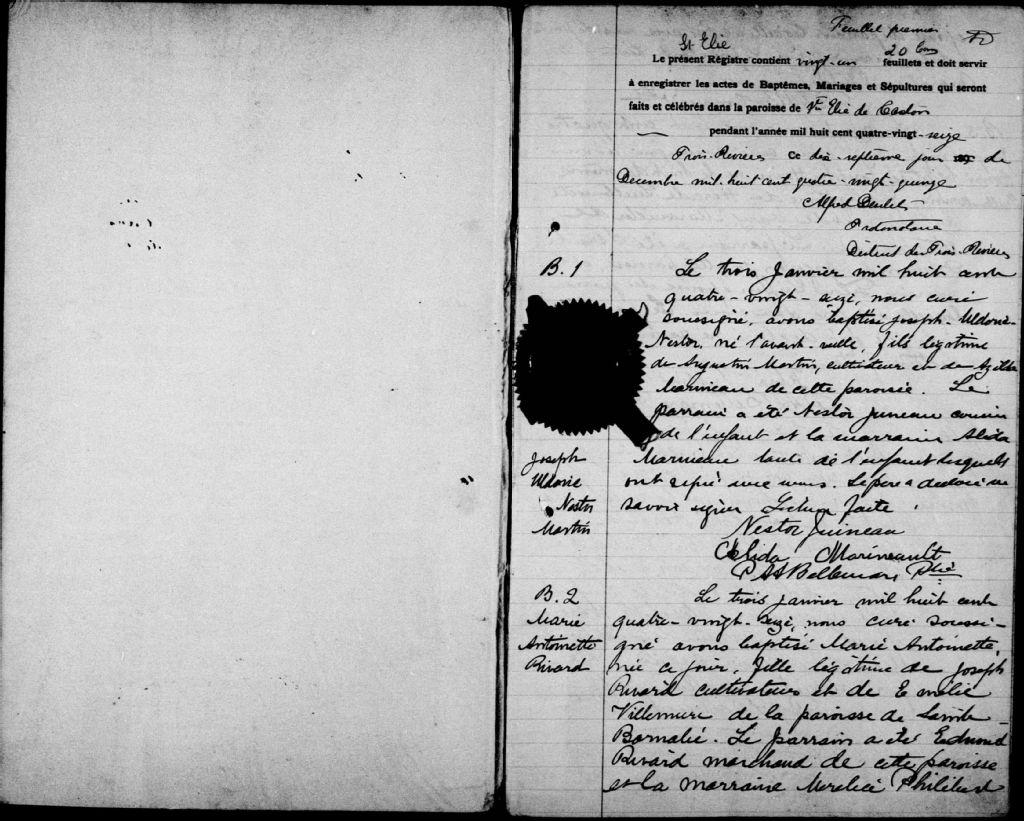 Feuillet premier
St Elie
20 Cms
Le présent Régistre contient vingt-un feuillets et doit servir
à enregistrer les actes de Baptêmes, Mariages et Sépultures qui seront
faits et célébrés dans la paroisse de St Elie de Caxton
pendant l'année mil huit cent quatre-vingt-seize
Trois-Rivières Ce dix-septième jour de
Decembre mil-huit cent quatre-vingt-quinze
Alfred Desilets
Protonotaire
District des Trois-Rivières
B.1
Le trois Janvier mil huit cent
quatre-vingt-seize, nous curé
soussigné, avons baptisé Joseph-Uldoric-
Nestor, né l'avant-veille, fils légitime
de Augustin Martin, cultivateur et de Azilda
Marineau de cette paroisse. Le
parrain a été Nestor Juneau cousin
de l'enfant et la marraine Alida
Joseph
Uldoric
Nestor
Martin
Marineau tante de l'enfant lesquels
ont signé avec nous. Le père a déclaré ne
savoir signer Lecture faite.
Nestor Juineau
Alida Marineault
Bellemare Ptre
B.2
Marie
Antoinette
Rivard
Le trois Janvier mil huit cent
quatre-vingt-seize, nous curé soussi-
gné avons baptisé Marie Antoinette,
née ce jour, fille légitime de Joseph
Rivard cultivateur et de Emélie
Villemure de la paroisse de Saint-
Barnabé. Le parrain a été Edmond
Rivard marchand de cette paroisse
et la marraine Philibert